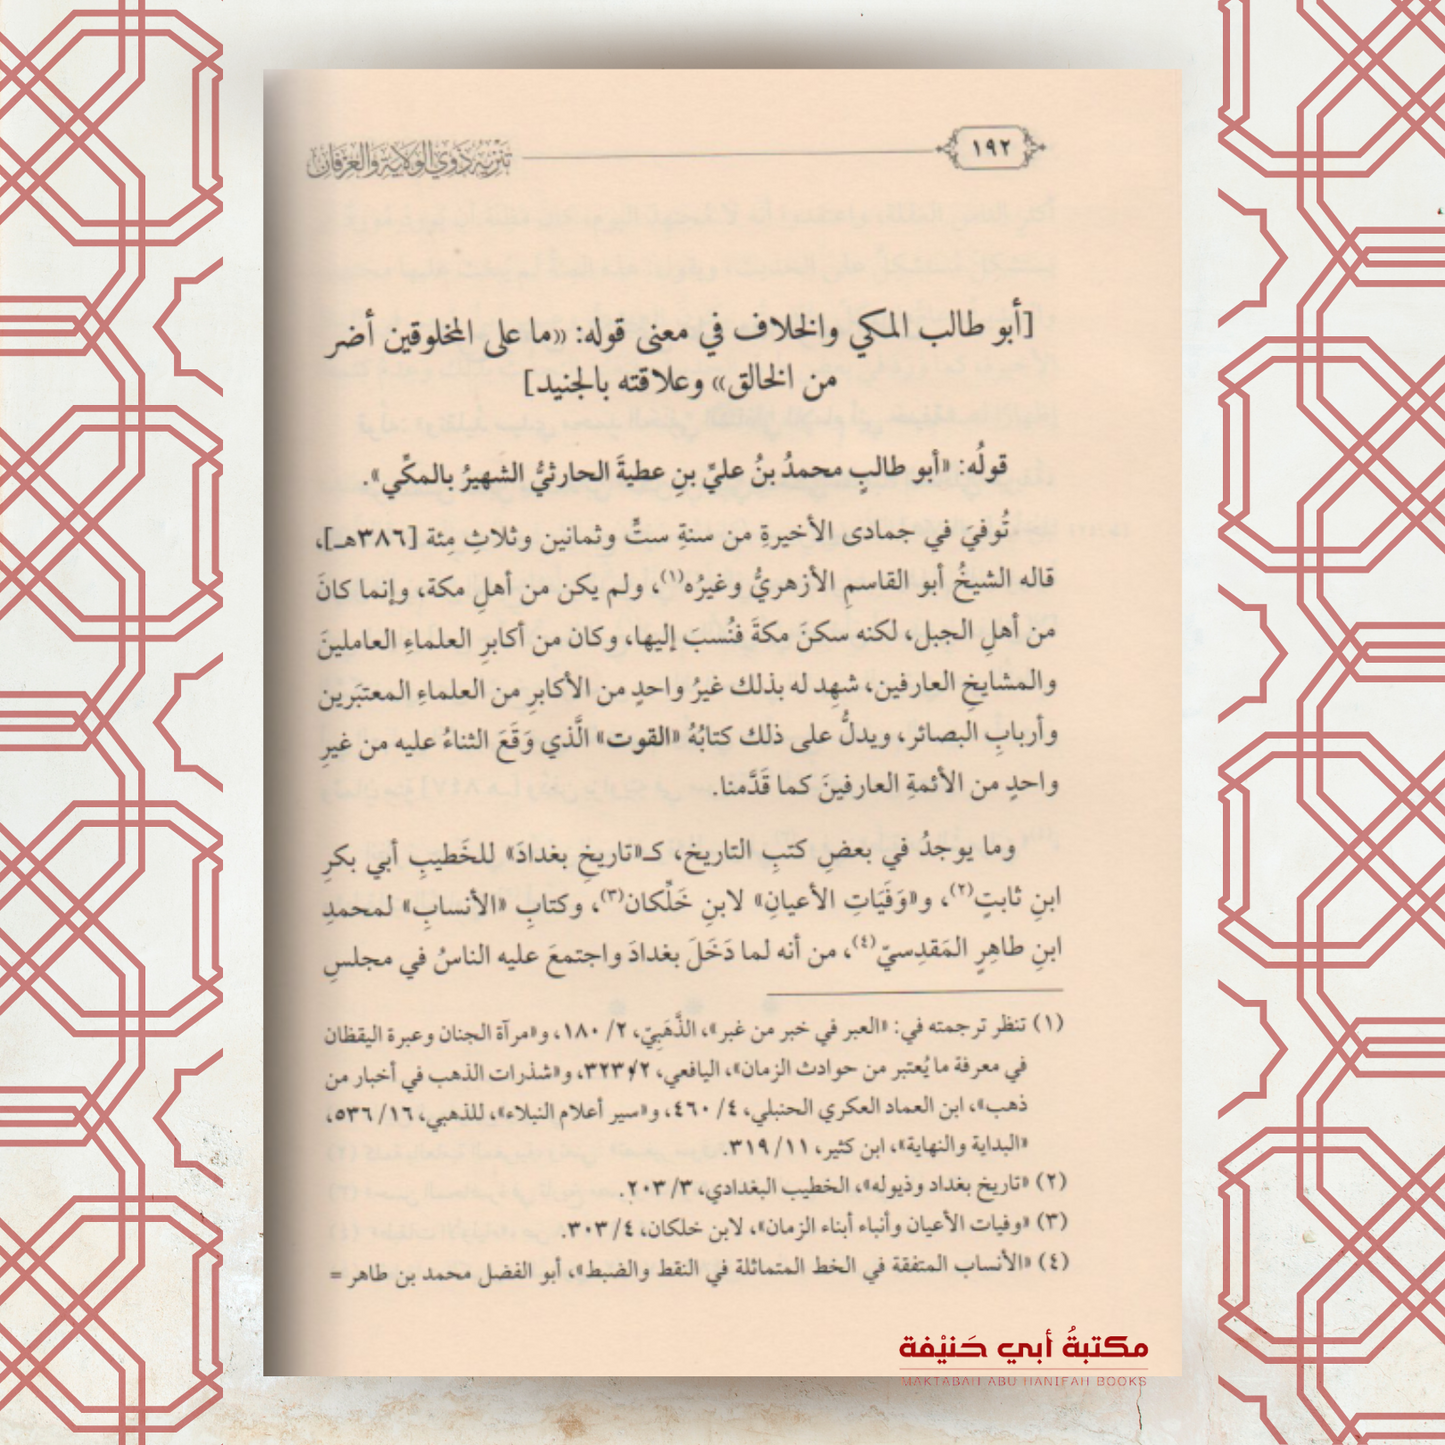 ١٩٢
تنزيه ذوي الولاية والعرفان
[أبو طالب المكي والخلاف في معنى قوله: «ما على المخلوقين أضر
من الخالق» وعلاقته بالجنيد]
قولُه: «أبو طالبٍ محمدُ بنُ عليِّ بنِ عطيةَ الحارثيُّ الشهيرُ بالمكّي».
تُوفيَ في جمادى الأخيرةِ من سنةِ ستٍّ وثمانين وثلاثِ مِئة [٣٨٦هـ]،
قاله الشيخُ أبو القاسمِ الأزهريُّ وغيرُه(١)، ولم يكن من أهلِ مكة، وإنما كانَ
من أهلِ الجبل، لكنه سكنَ مكةَ فنُسبَ إليها، وكان من أكابرِ العلماءِ العاملينَ
والمشايخِ العارفين، شهِد له بذلك غيرُ واحدٍ من الأكابرِ من العلماءِ المعتبَرين
وأربابِ البصائر، ويدلُّ على ذلك كتابُهُ «القوت» الَّذي وَقَعَ الثناءُ عليه من غيرِ
واحدٍ من الأئمةِ العارفينَ كما قَدَّمنا.
وما يوجدُ في بعضِ كتبِ التاريخ، كـ«تاريخِ بغدادَ» للخَطيبِ أبي بكرِ
ابنِ ثابتٍ(٢)، و«وَفَيَاتِ الأعيانِ» لابنِ خَلِّكان(٣)، وكتابِ «الأنسابِ» لمحمدِ
ابنِ طاهِرٍ المَقدِسيّ(٤)، من أنه لما دَخَلَ بغدادَ واجتمعَ عليه الناسُ في مجلسِ
(١) تنظر ترجمته في: «العبر في خبر من غبر»، الذَّهَبِيّ، ٢/ ١٨٠، و«مرآة الجنان وعبرة اليقظان
في معرفة ما يُعتبر من حوادث الزمان»، اليافعي، ٢/ ٣٢٣، و«شذرات الذهب في أخبار من
ذهب»، ابن العماد العكري الحنبلي، ٤/ ٤٦٠، و«سير أعلام النبلاء»، للذهبي، ١٦/ ٥٣٦،
«البداية والنهاية»، ابن كثير، ١١/ ٣١٩.
(٢) «تاريخ بغداد وذيوله»، الخطيب البغدادي، ٣/ ٢٠٣.
(٣) «وفيات الأعيان وأنباء أبناء الزمان»، لابن خلكان، ٤/ ٣٠٣.
(٤) «الأنساب المتفقة في الخط المتماثلة في النقط والضبط»، أبو الفضل محمد بن طاهر =
مكتبةُ أبي حَنيْفة
MAKTABAH ABU HANIFAH BOOKS